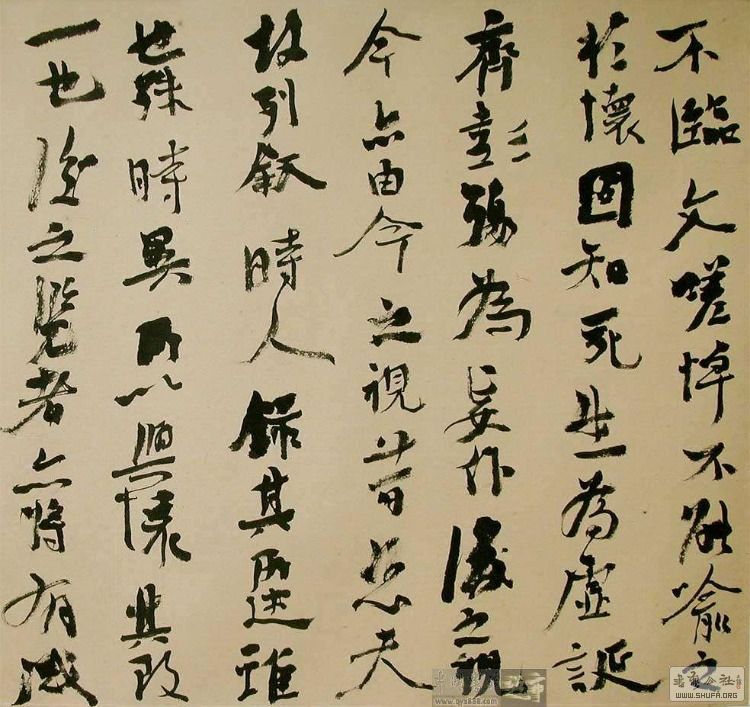 不臨文嗟悼不能喻之
於懷固知死生為虛誕
齊彭殤為妄作後之視
今亦由今之視昔悲夫
故列敘時人錄其所述雖
世殊時異所以興懷其致
一也後之覽者亦將有感
WWW.SHUFA.ORG